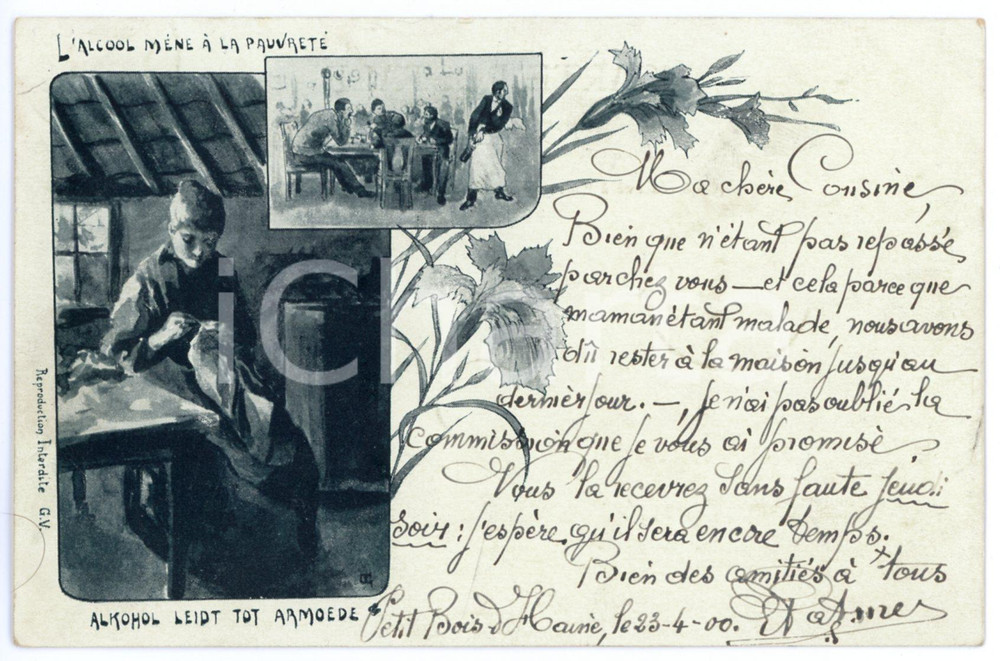 L'ALCOOL MÉNE À LA PAUVRETÉ
Ma chère Cousine,
Bien que n'étant pas repassée
par chez vous — et cela parce que
maman étant malade, nous avons
dû rester à la maison jusqu'au
dernièr jour. —, je n'ai pas oublié la
commission que je vous ai promise
Vous la recevrez sans faute jeudi
soir : j'espère qu'il sera encore temps.
Bien des amitiés à tous
Petit Bois d'Haine, le 23-4-00.
ALKOHOL LEIDT TOT ARMOEDE
Reproduction Interdite G.V.
iCharta